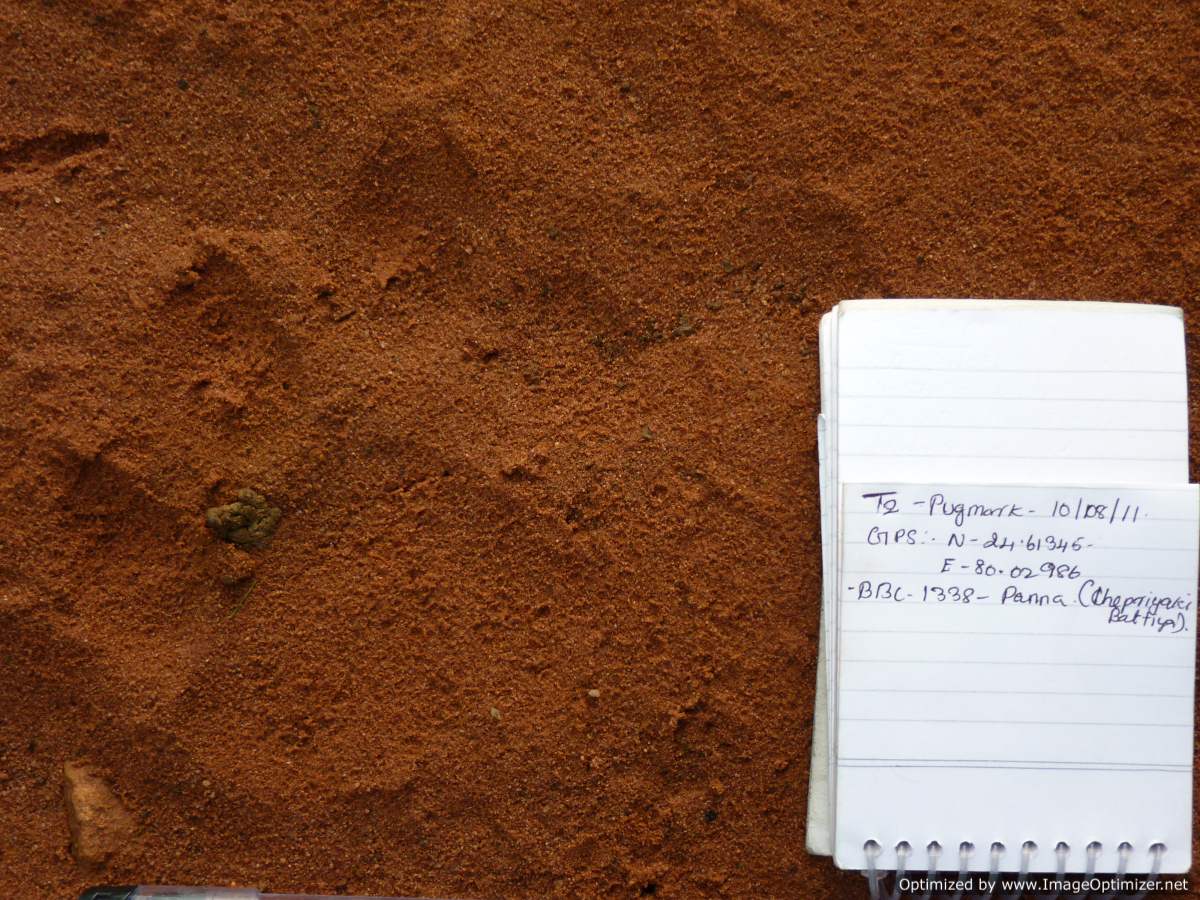 T2 - Pugmark - 10/08/11.
GPS:- N - 24.61345-
E - 80.02986
-BBC - 1338 - Panna. (Chapariyaki
Battiya).
Optimized by www.ImageOptimizer.net